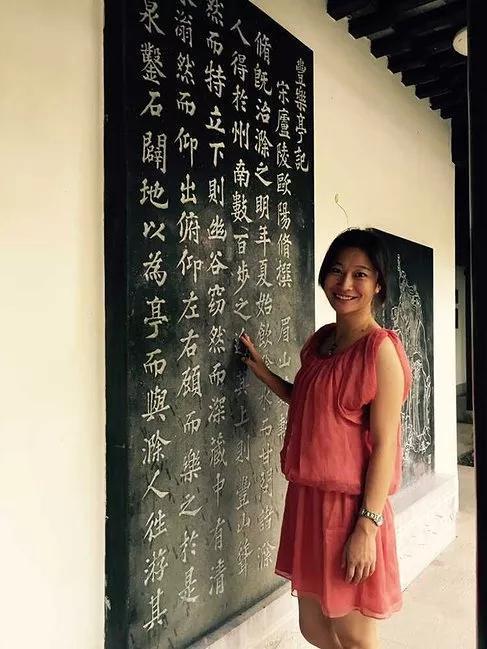 豐樂亭記
宋廬陵歐陽脩撰 眉山
脩既治滁之明年夏始飲滁水而甘問諸滁
人得於州南數百步之其上則豐山聳
然而特立下則幽谷窈然而深藏中有清
滃然而仰出俯仰左右顧而樂之於是
泉鑿石闢地以為亭而與滁人往游其